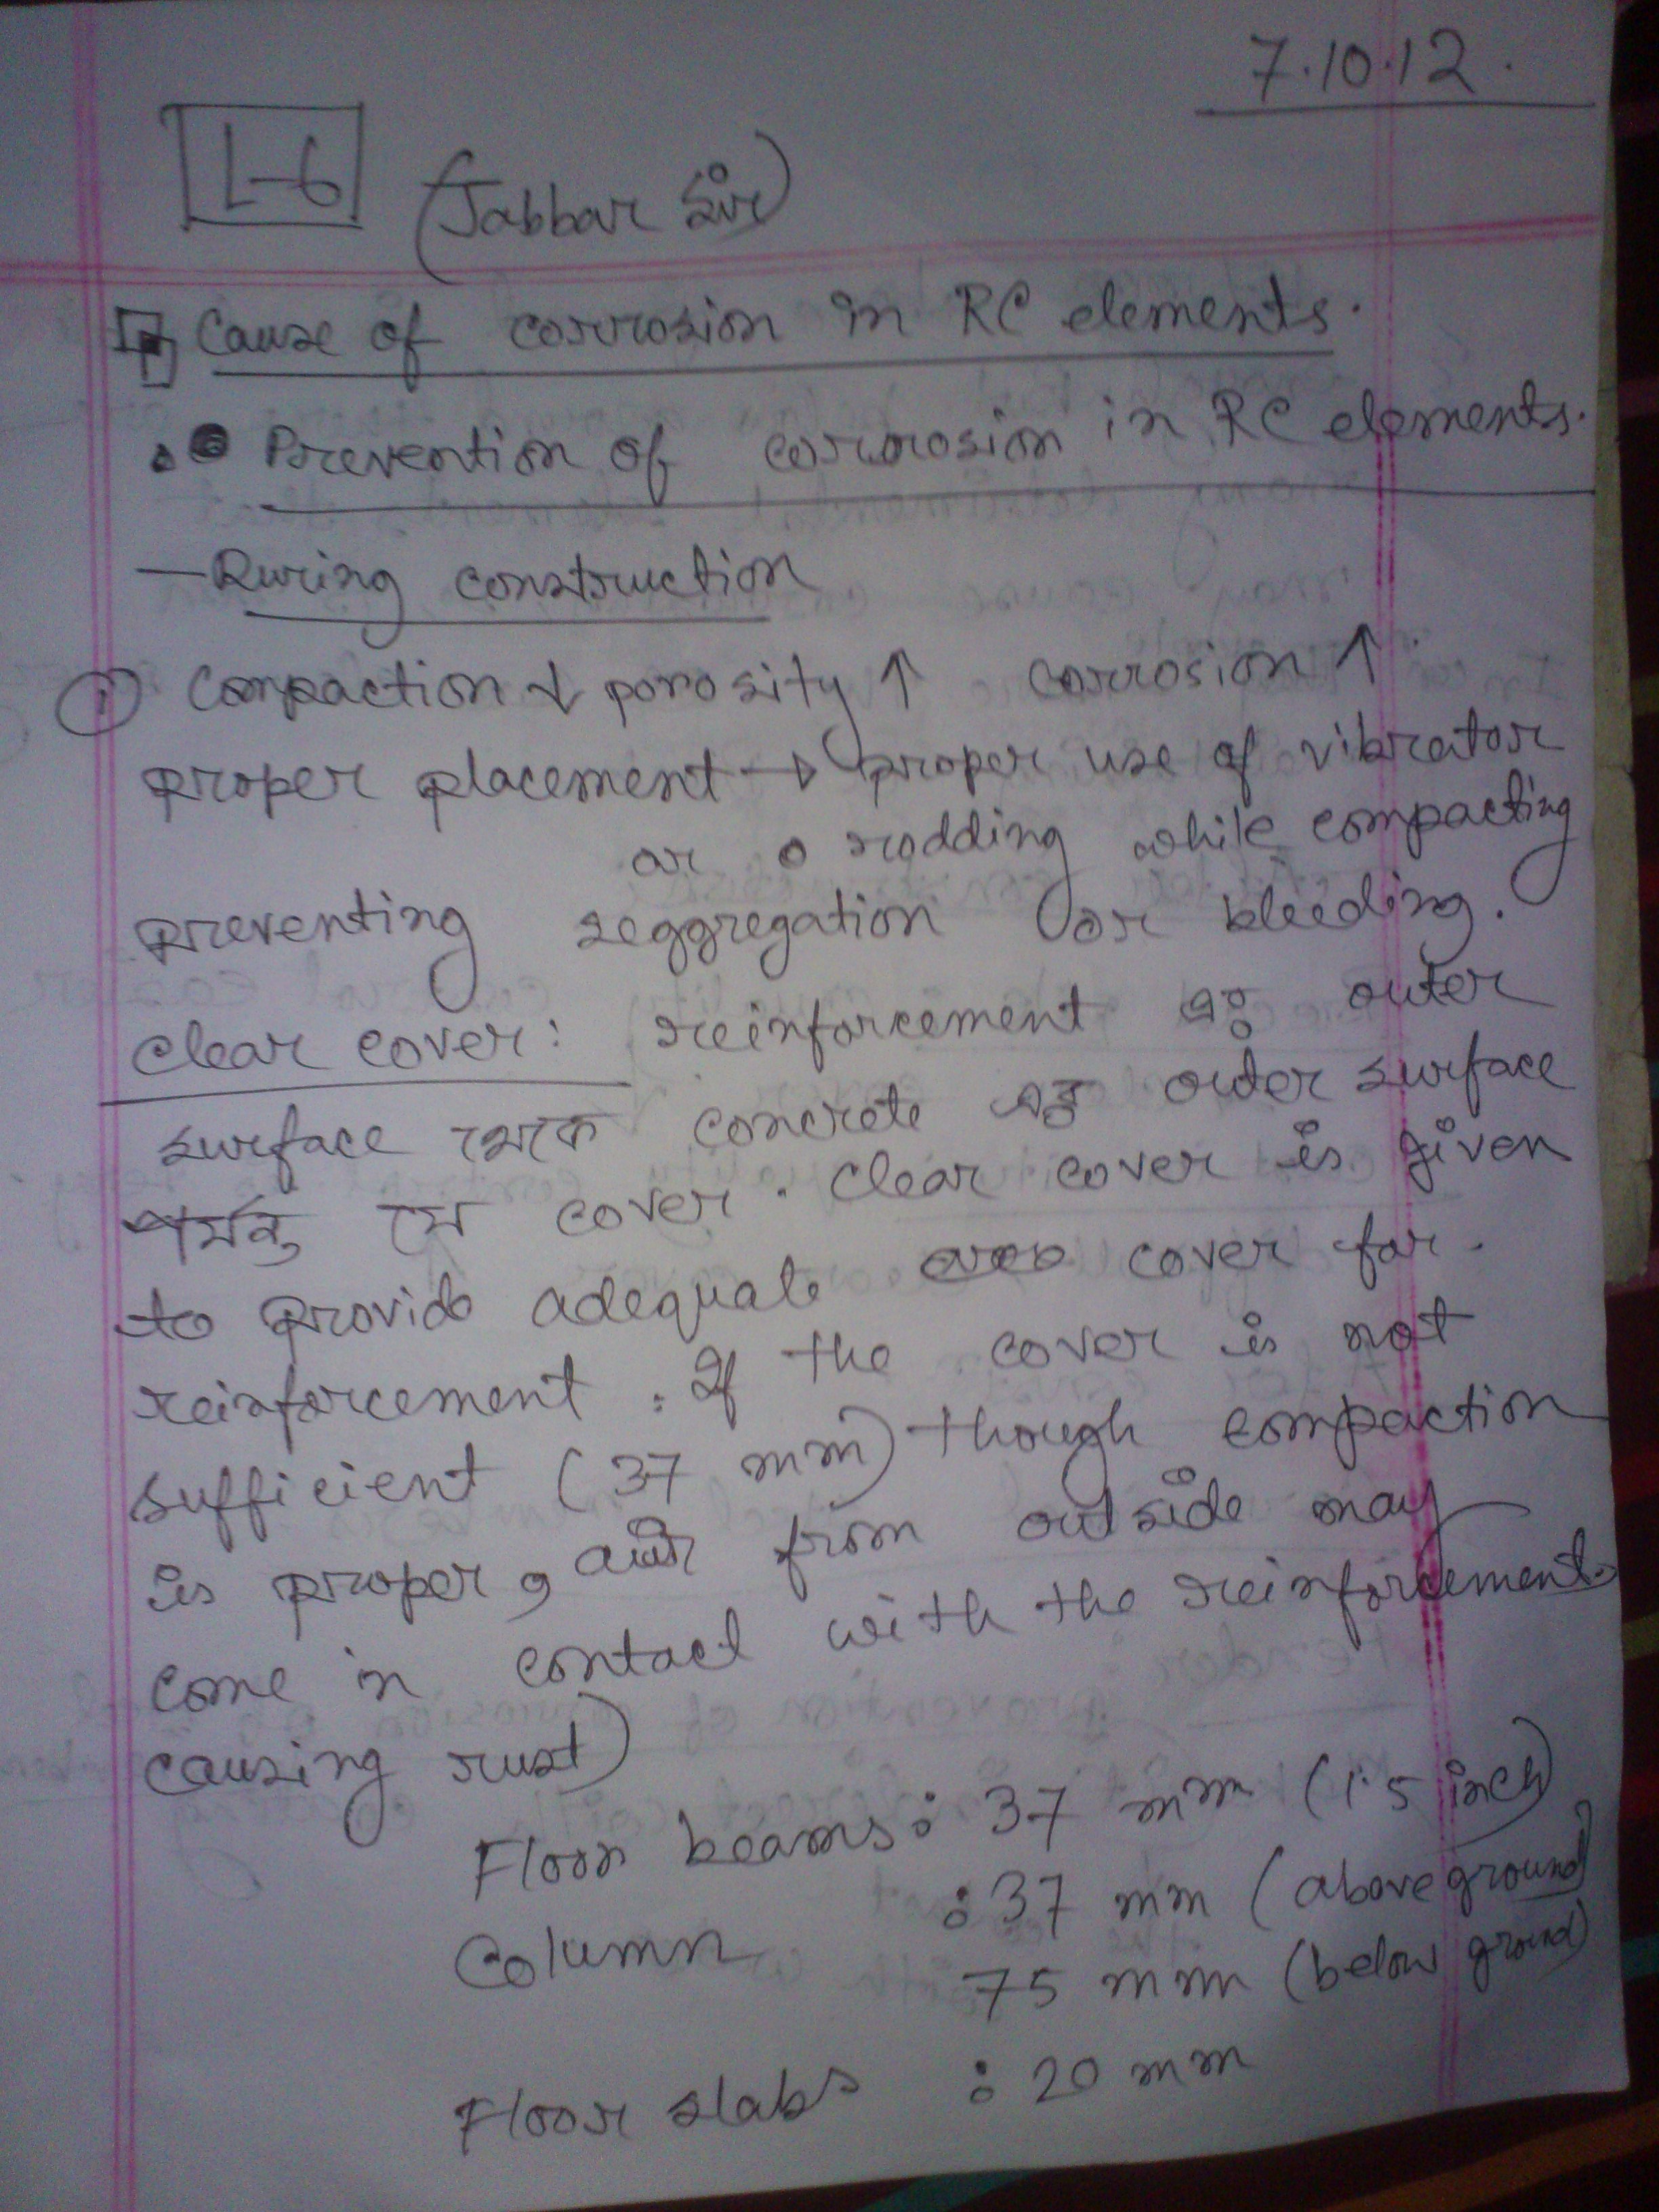 7.10.12.
L-6 (Jabbar Sir)
Cause of corrosion in RC elements.
Prevention of corrosion in RC elements.
— During construction
① Compaction ↓ porosity ↑ corrosion ↑
proper placement → proper use of vibrator
or rodding while compacting
preventing seggregation or bleeding.
clear cover: reinforcement এর outer
surface থেকে concrete এর outer surface
পর্যন্ত যে cover. Clear cover is given
to provide adequate cover for
reinforcement. If the cover is not
sufficient (37 mm) though compaction
is proper, air from outside may
come in contact with the reinforcement
causing rust)
Floor beams: 37 mm (1.5 inch)
Column : 37 mm (above ground)
75 mm (below ground)
Floor slabs : 20 mm